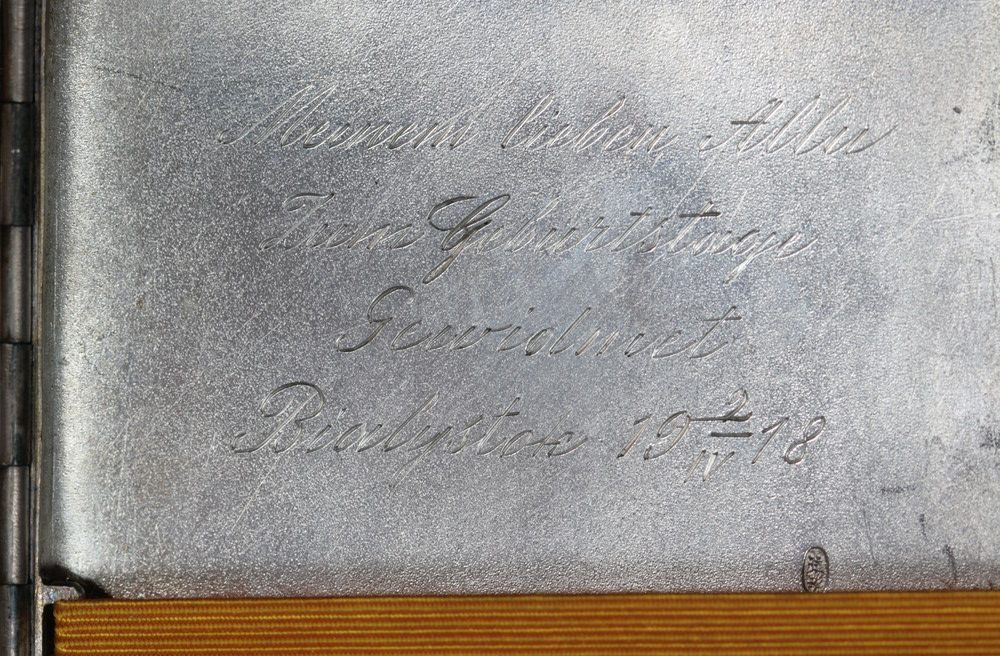 Meinem lieben
Zum Geburtstage
Gewidmet
Bialystok 19 2/IV 18